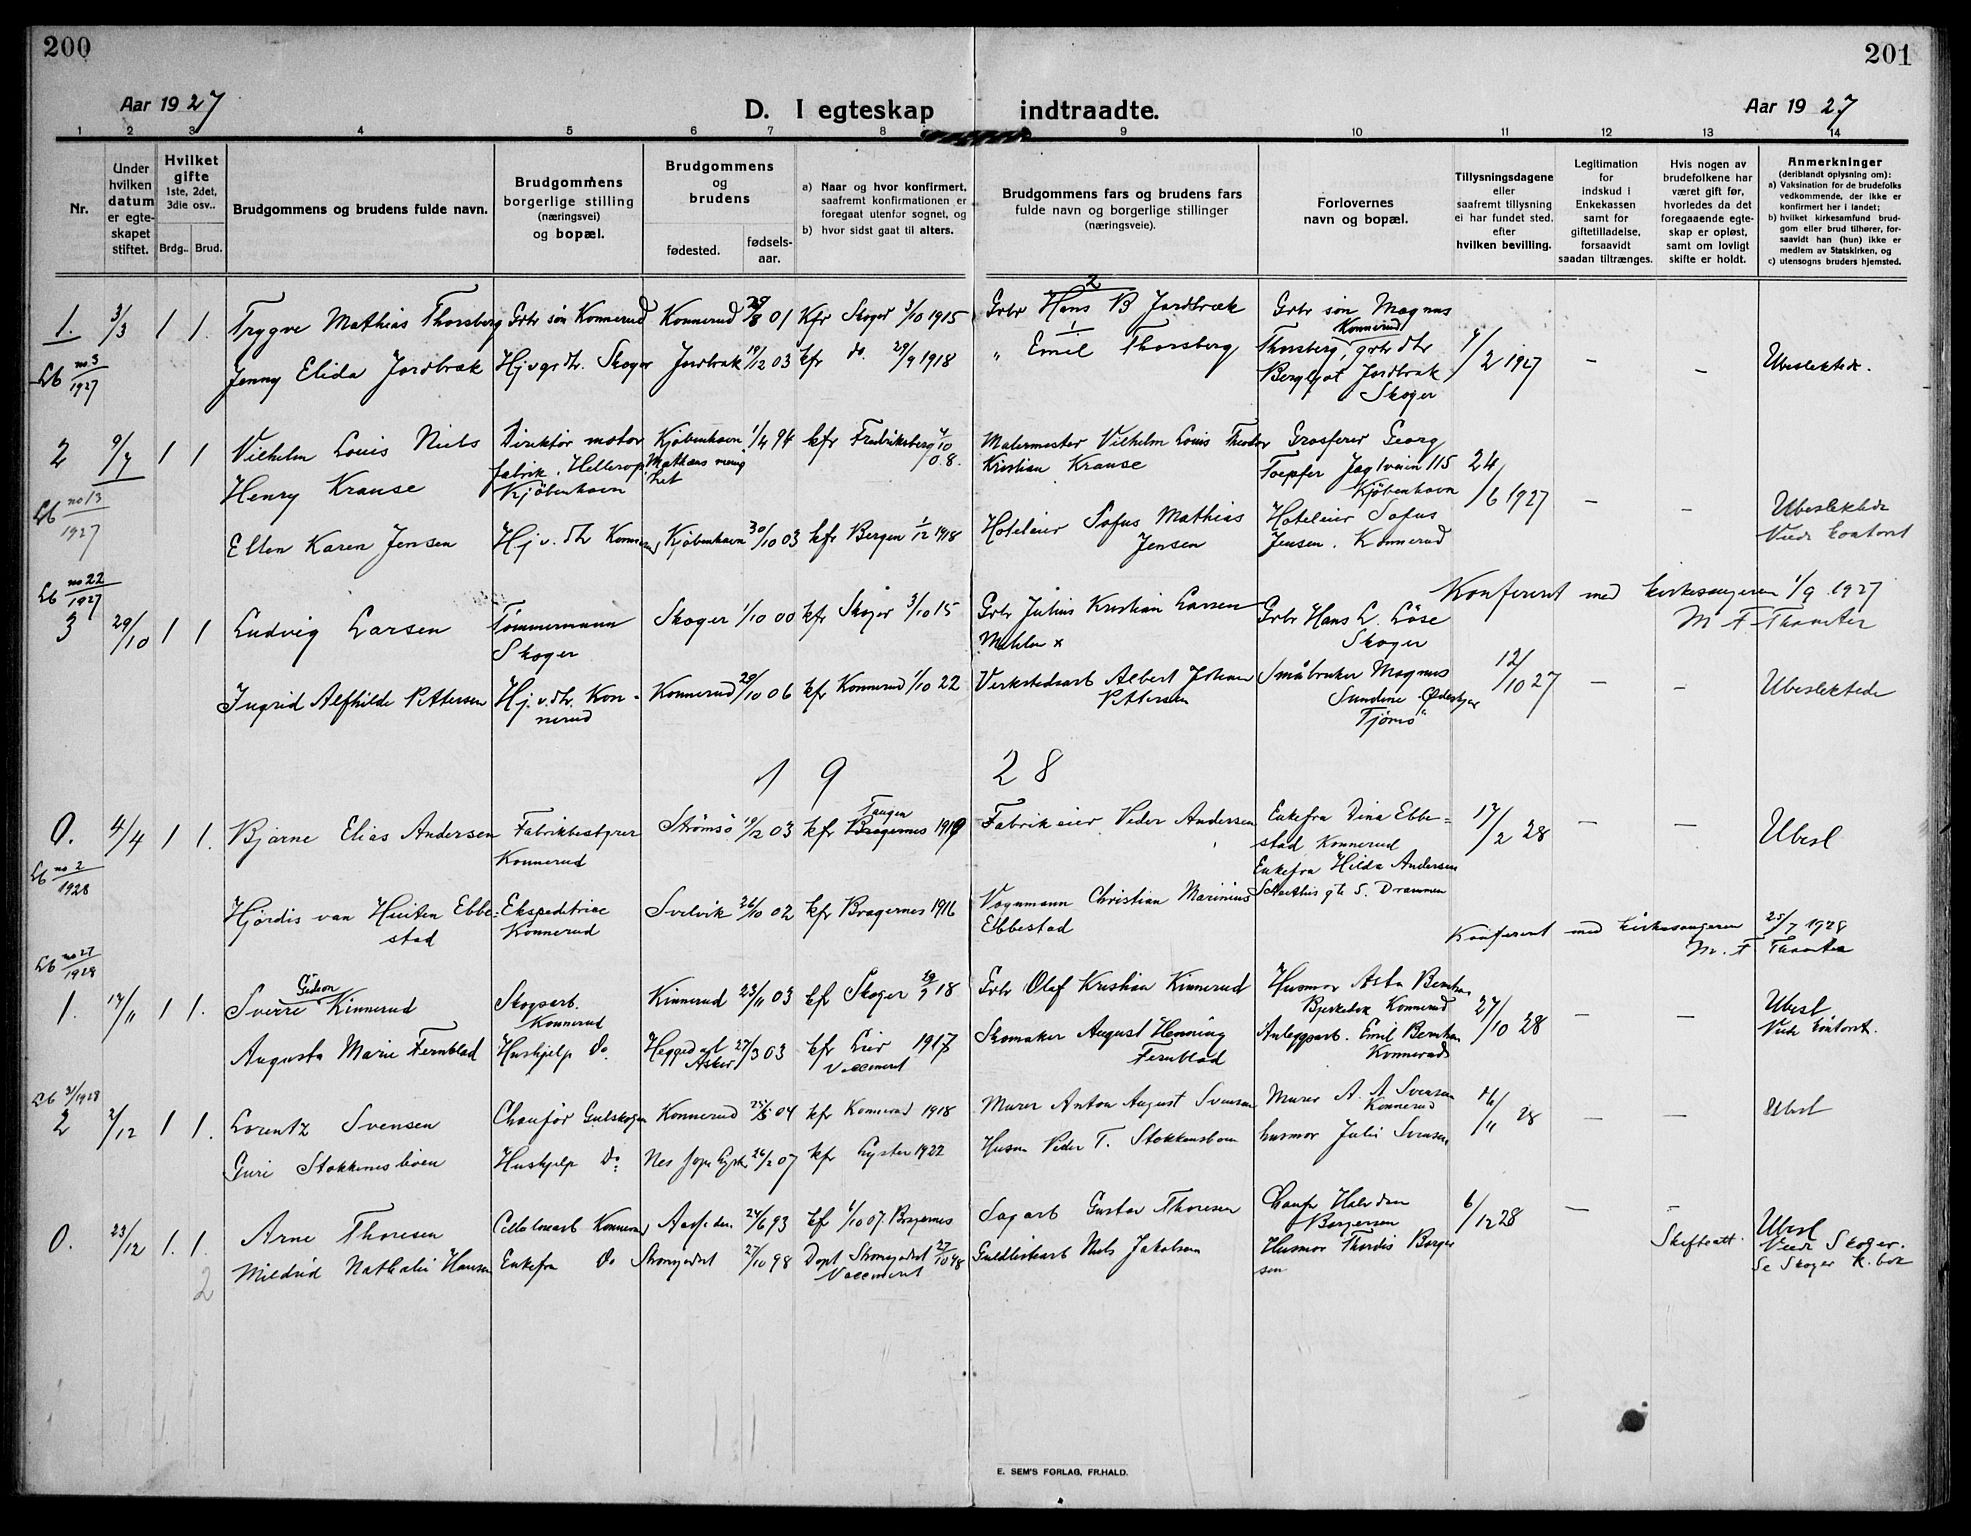 200
201
Aar 1927
D. I egteskap indtraadte.
Aar 1927
1 2 3 4 5 6 7 8 9 10 11 12 13 14
Nr.
Under hvilken datum er egteskapet stiftet.
Hvilket gifte 1ste, 2det, 3die osv..
Brdg.. Brud.
Brudgommens og brudens fulde navn.
Brudgommens borgerlige stilling (næringsvei) og bopæl.
Brudgommens og brudens
fødested. fødsels-aar.
a) Naar og hvor konfirmert, saafremt konfirmationen er foregaat utenfor sognet, og
b) hvor sidst gaat til alters.
Brudgommens fars og brudens fars fulde navn og borgerlige stillinger (næringsveie).
Forlovernes navn og bopæl.
Tillysningsdagene eller saafremt tillysning ei har fundet sted. efter hvilken bevilling.
Legitimation for indskud i Enkekassen samt for giftetilladelse, forsaavidt saadan tiltrænges.
Hvis nogen av brudefolkene har været gift før, hvorledes da det foregaaende egteskap er opløst, samt om lovligt skifte er holdt.
Anmerkninger (deriblandt oplysning om):
a) Vaksination for de brudefolks vedkommende, der ikke er konfirmert her i landet;
b) hvilket kirkesamfund brudgom eller brud tilhører, forsaavidt han (hun) ikke er medlem av Statskirken, og
c) utensogns bruders hjemsted.
1. 3/3 1 1. Trygve Mathias Thorsberg Grbr søn Konnerud Konnerud 29/8 01 Kfr Skoger 3/10 1915 Grbr Hans B Jordbræk 2 Grbr søn Magnus
Lb no 3/1927 Jenny Elida Jordbræk Hj v gr dtr. Skoger Jordbræk 19/12 03 kfr do. 29/9 1918 " Emil Thorsberg 1 Thorsberg, Konnerud grbr dtr Bergljot Jordbræk Skoger 4/2 1927 — — Ubeslektede.
2 9/7 1 1 Vilhelm Louis Niels Henry Krause Direktør motor fabrik. Hellerup Kjøbenhavn Kjøbenhavn 1/4 94 Mathæus menighet kfr Fredriksberg 4/10 08. Malermester Vilhelm Louis Theodor Kristian Krause Grosserer Georg Toepfer Jagtveien 115 Kjøbenhavn 24/6 1927 — —
Lb no 13/1927 Ellen Karen Jensen Hj v. dtr Konnerud Kjøbenhavn 30/10 03 kfr Bergen 1/12 1918 Hoteleier Sofus Mathias Jensen Hoteleier Sofus Jensen. Konnerud Ubeslektede Viede kontoret
Lb no 22/1927 Konferert med kirkesangeren 1/9 1927
M F Thamter
3 29/10 1 1 Ludvig Larsen Tømmermann Skoger Skoger 1/10 00 kfr Skoger 3/10 15 Grbr Julius Kristian Larsen x Grbr Hans L. Løse Skoger
Ingrid Alfhilde Pettersen Hj. v. dtr. Konnerud Konnerud 29/10 06 kfr Konnerud 1/10 22 Verkstedsarb Albert Johan Pettersen Småbruker Magnus Sundene Tjømø" 12/10 27 — — Ubeslektede
1 9 28
0. 4/4 1 1. Bjarne Elias Andersen Fabrikbestyrer Konnerud Strømsø 19/2 03 kfr Tangen Bragernes 1919 Fabrikeier Peder Andersen Enkefru Dina Ebbestad Konnerud Enkefru Hilda Andersen gt 5. Drammen 17/2 28 — — Ubesl
Lb no 2/1928 Hjørdis van Huiten Ebbestad Ekspeditrice Konnerud Svelvik 26/10 02 kfr Bragernes 1916 Vognmann Christian Marinius Ebbestad
Konferert med kirkesangeren 25/7 1928
M. F. Thamter
Lb no 27/1928
1. 17/11 1 1. Sverre Gideon Kinnerud Skogsarb. Konnerud Kinnerud 23/11 03 kfr Skoger 29/9 18 Grbr Olaf Kristian Kinnerud Husmor Asta Berntsen Konnerud 27/10 28 — — Ubesl Viede kontoret.
Augusta Marie Fernblad Hushjelp do. Heggedal Asker 27/3 03 kfr Lier 1917 Vaccineret Skomaker August Henning Fernblad Anleggsarb. Emil Berntsen Konnerud
2 2/12 1 1. Lorentz Svensen Chauför Gulskogen Konnerud 25/8 04 kfr Konnerud 1918 Murer Anton August Svensen Murer A. A Svensen Konnerud 16/11 28 — — Ubesl
Guri Stokkenesboen Hushjelp Do: Nes 26/2 07 kfr Lyster 1922 Husm Peder T. Stokkensboen husmor Julie Svensen
0. 23/12 1. 1. Arne Thoresen Cellulosearb Konnerud 24/6 93 kfr 6/10 07. Bragernes Sagarb Gustav Thoresen Chaufr Halvdan Borgersen 6/12 28 — — Ubesl
2 Mildrid Nathalie Hansen Enkefru do Strømgodset 27/10 98 Døpt Strømgodset Vaccineret Guldlistearb Niels Jakobsen Husmor Thordis Borgersen Skifteatt. Viede Skoger. Se Skoger K. bok
E. SEM'S FORLAG, FR.HALD.